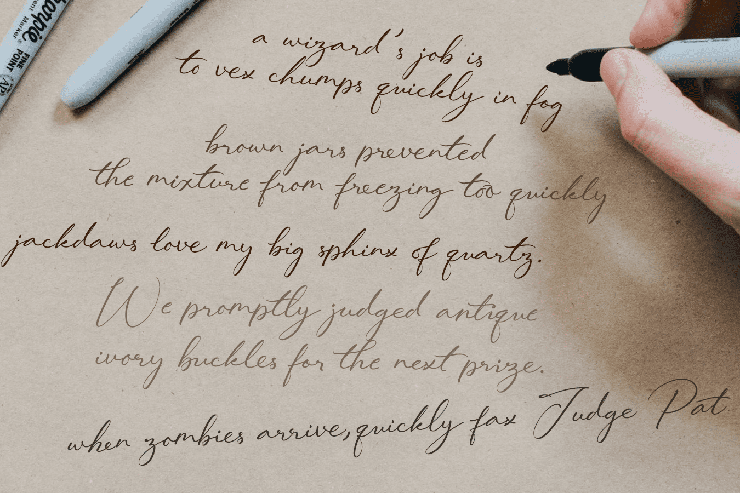 Sharpie
FINE POINT
a wizard's job is
to vex chumps quickly in fog
brown jars prevented
the mixture from freezing too quickly
jackdaws love my big sphinx of quartz.
We promptly judged antique
ivory buckles for the next prize.
when zombies arrive, quickly fax Judge Pat